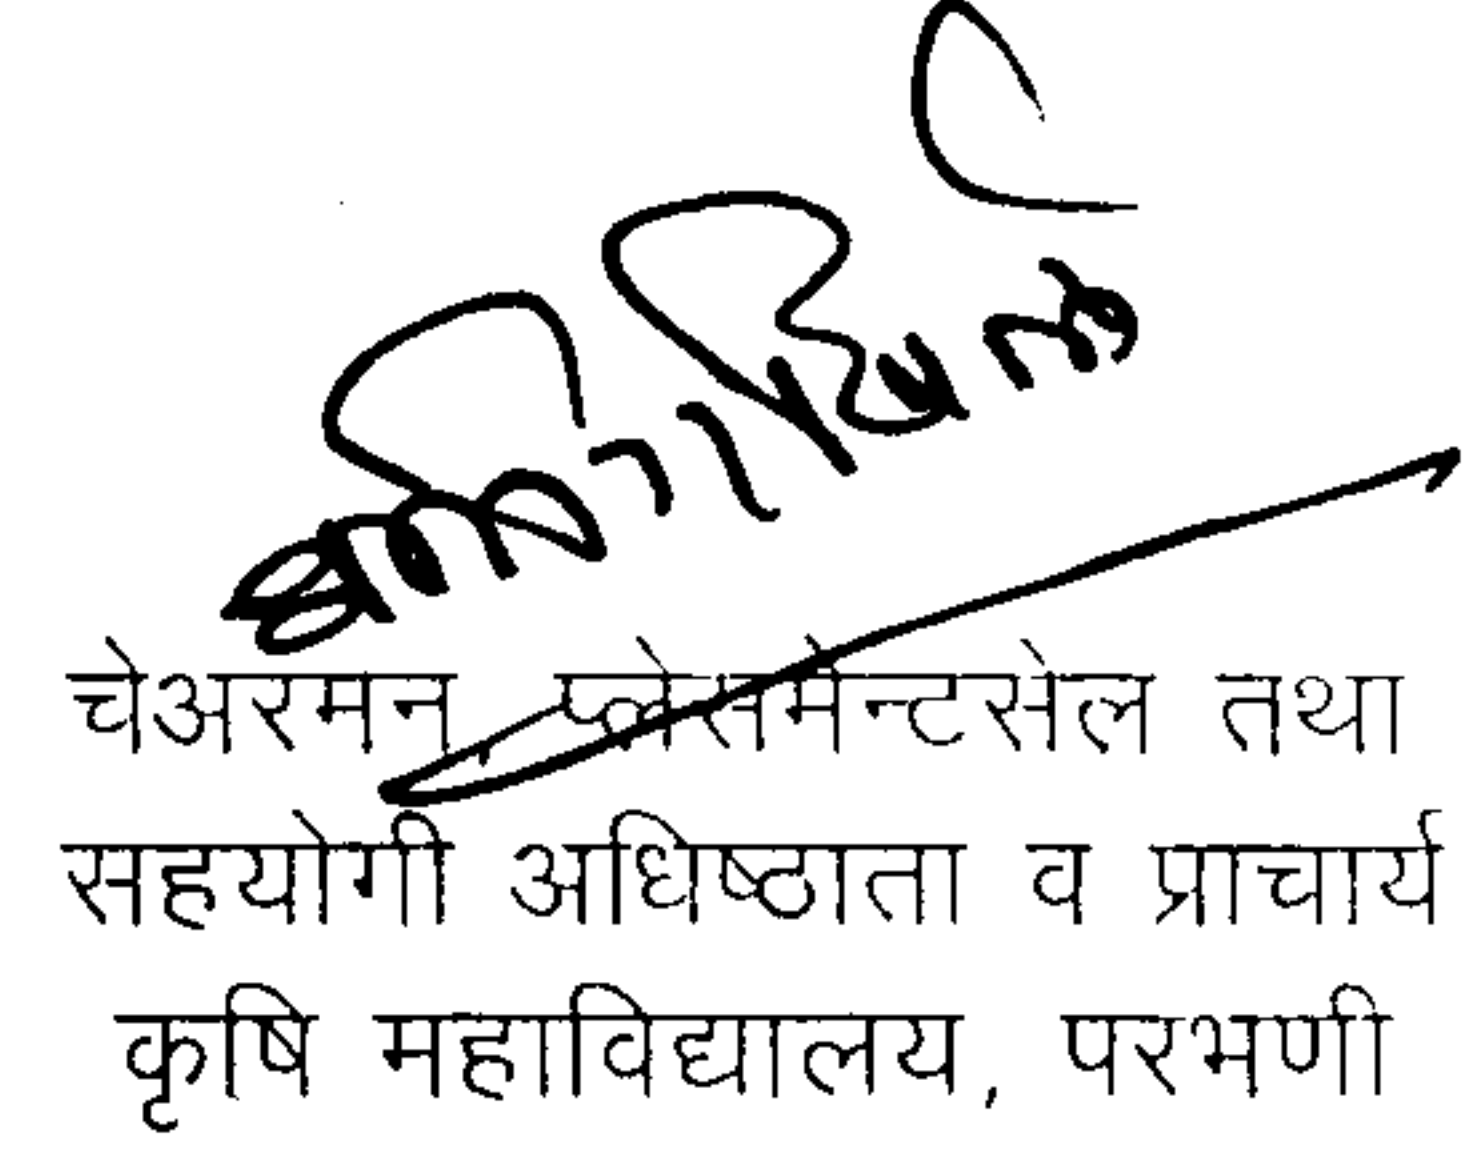 चेअरमन, प्लेसमेन्टसेल तथा
सहयोगी अधिष्ठाता व प्राचार्य
कृषि महाविद्यालय, परभणी